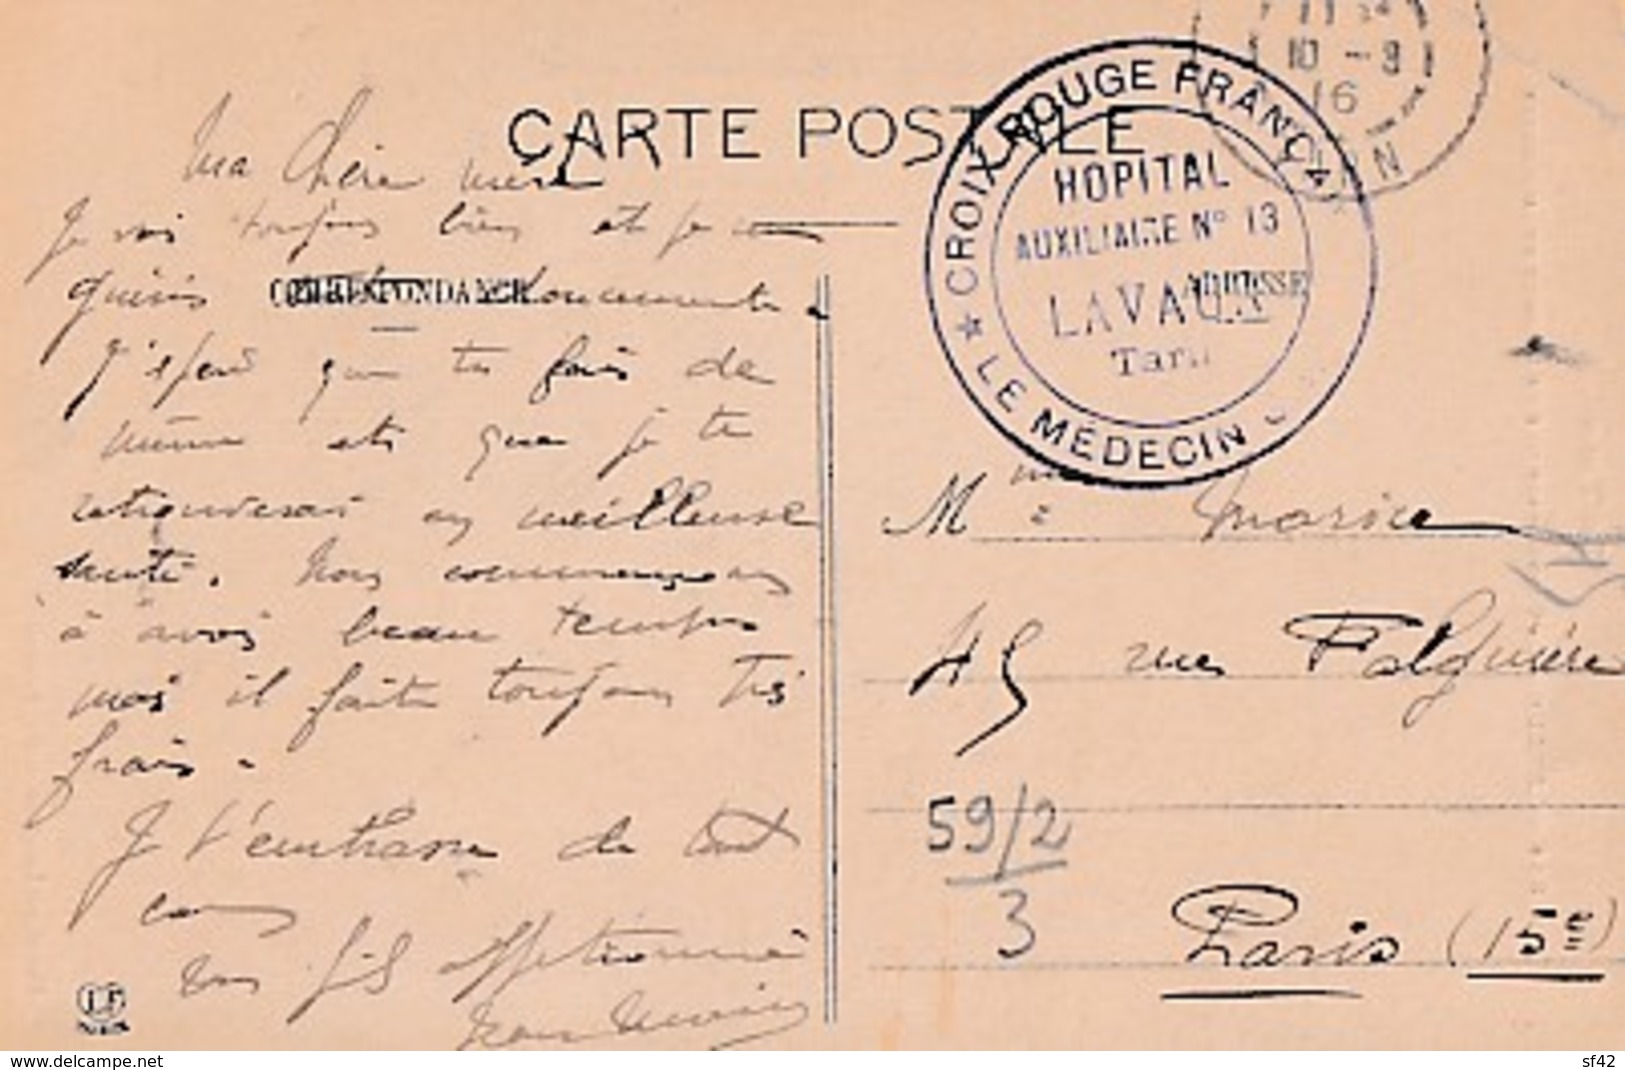 CARTE POSTALE
10 - 9
16
CROIX ROUGE FRANÇA
HOPITAL
AUXILIAIRE N° 13
LAVAUR
Tarn
★ LE MÉDECIN
CORRESPONDANCE
ADRESSE
Ma Chère mère
Je vais toujours bien et je
guéris doucement.
J'espère que tu fais de
même et que je te
retrouverai en meilleure
santé. Nous commençons
à avoir beau temps
mais il fait toujours très
frais.
Je t'embrasse de tout
cœur
ton fils affectionné
Jean
Mme
45 rue Falguière
59/2
3
Paris (15e)
LF
www.delcampe.net
sf42